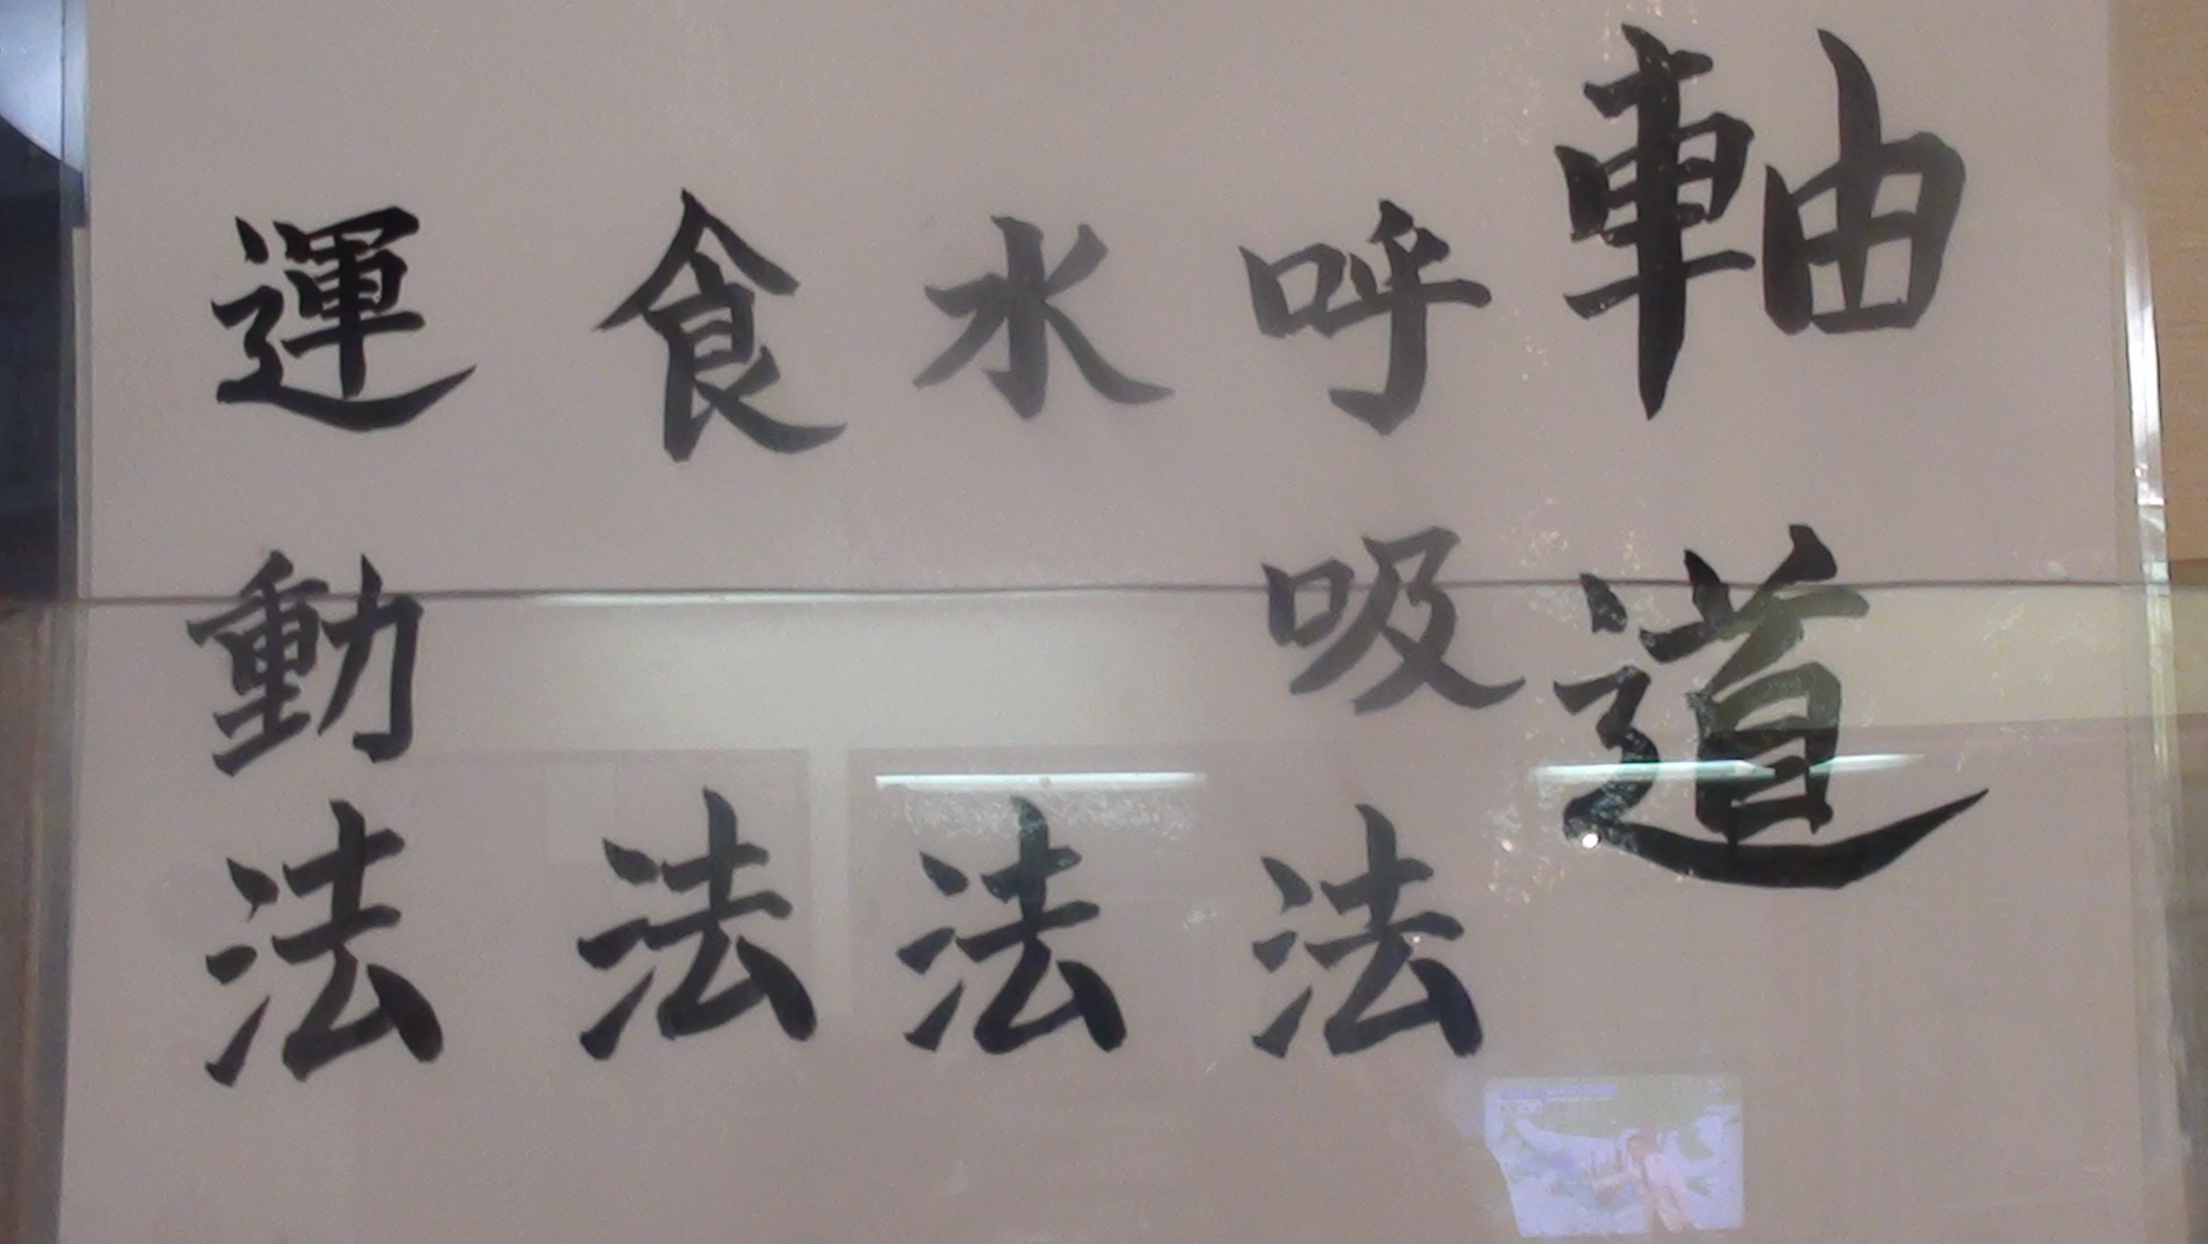 軸道
呼吸法
水法
食法
運動法